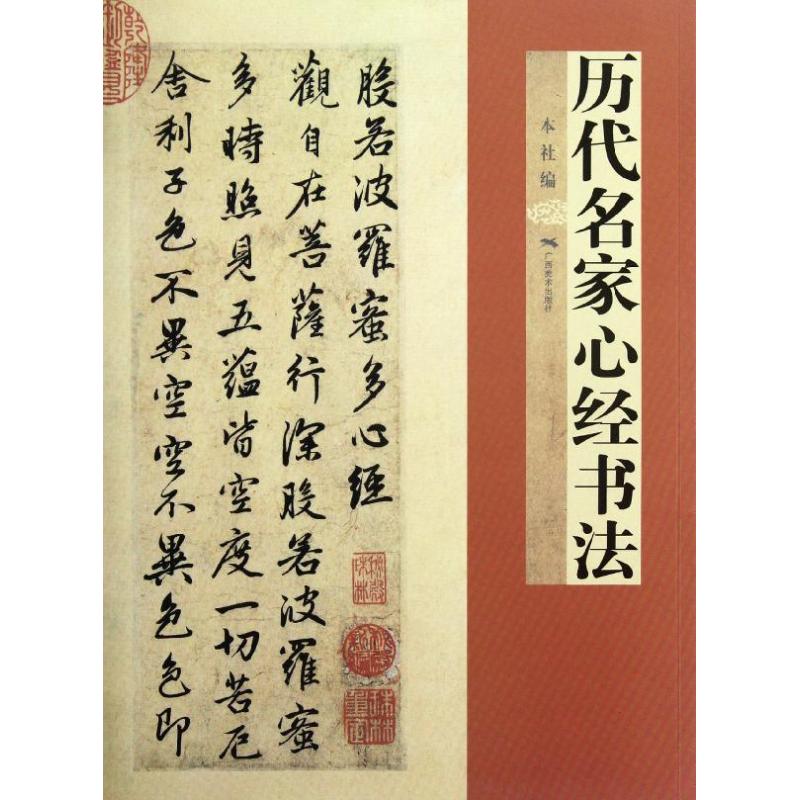 历代名家心经书法
本社编
广西美术出版社
般若波羅蜜多心經
觀自在菩薩行深般若波羅蜜
多時照見五蘊皆空度一切苦厄
舍利子色不異空空不異色色即